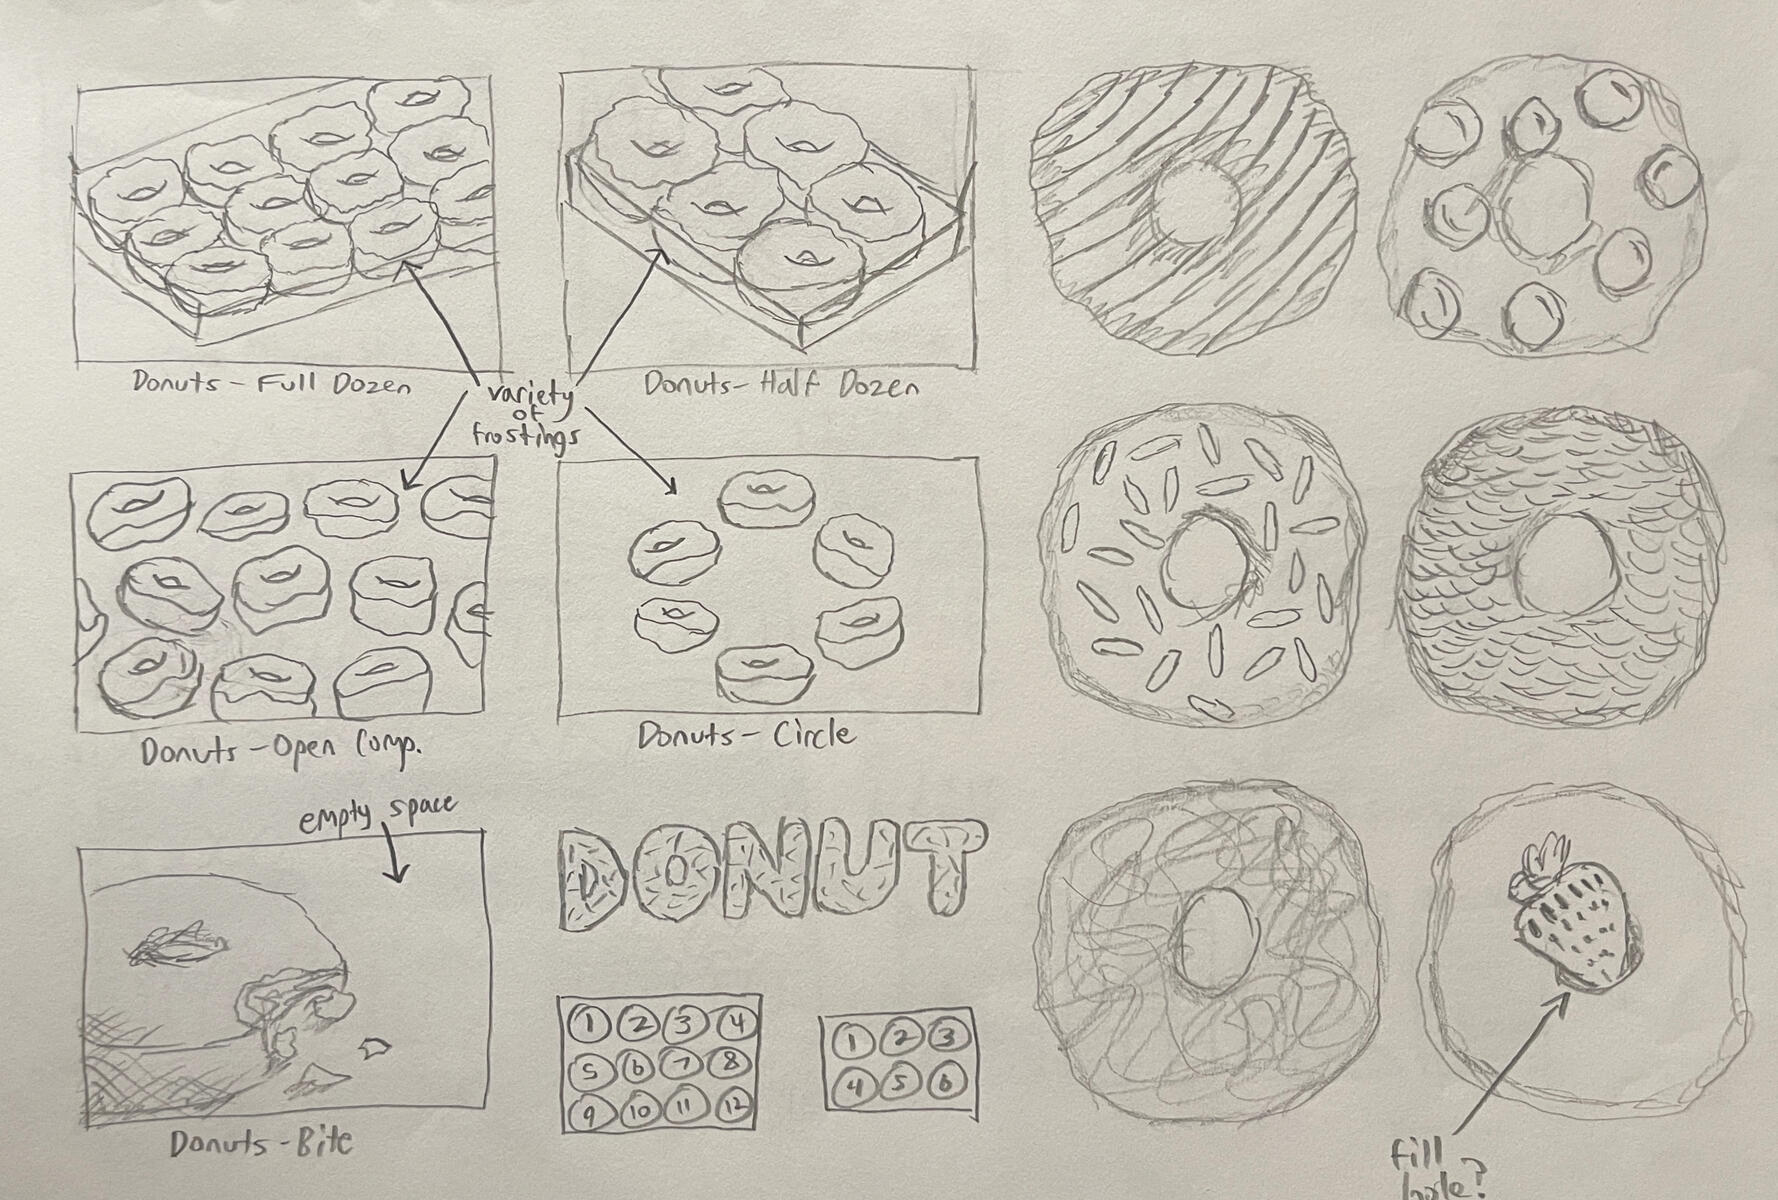 Donuts - Full Dozen
Donuts - Half Dozen
variety
of
frostings
Donuts - Open Comp.
Donuts - Circle
empty space
DONUT
1 2 3 4
5 6 7 8
9 10 11 12
1 2 3
4 5 6
Donuts - Bite
fill
hole?